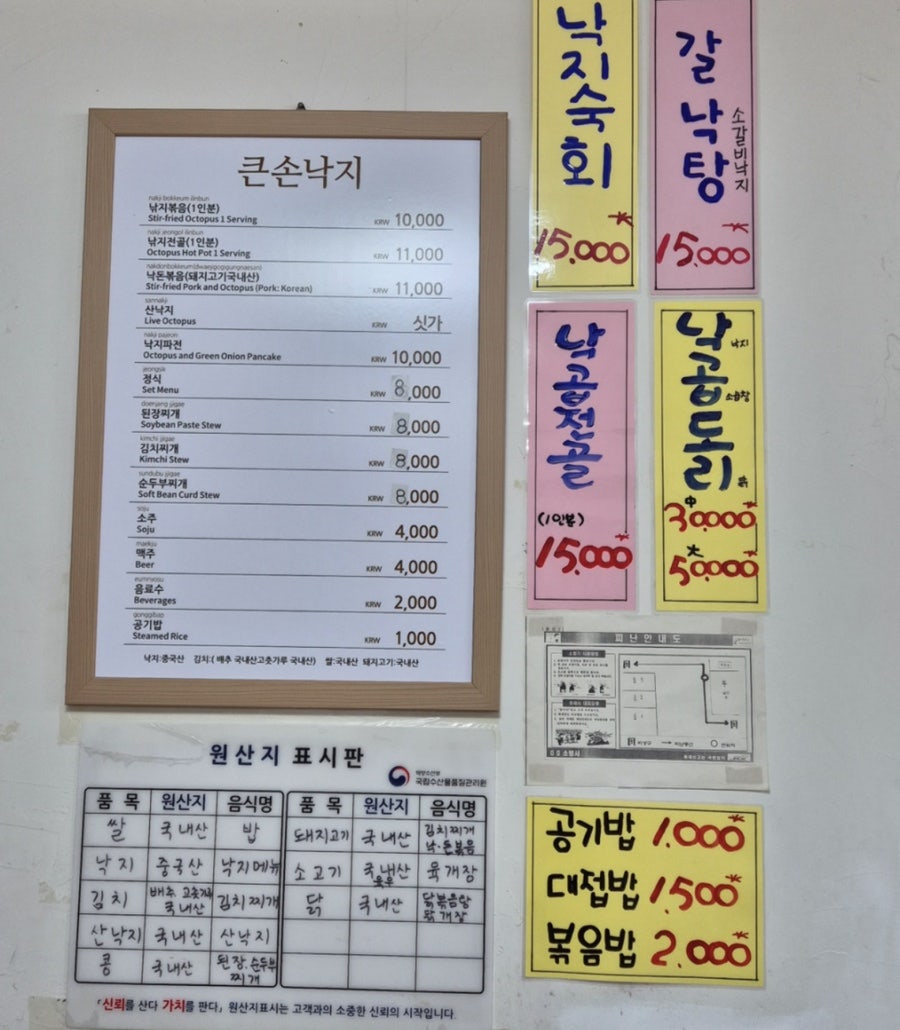 큰손낙지
nakji bokkeum ilinbun
낙지볶음(1인분)
Stir-fried Octopus 1 Serving
KRW 10,000
nakji jeongol ilinbun
낙지전골(1인분)
Octopus Hot Pot 1 Serving
KRW 11,000
낙돈볶음(돼지고기국내산)
Stir-fried Pork and Octopus (Pork: Korean)
KRW 11,000
sannakji
산낙지
Live Octopus
KRW 싯가
nakji pajeon
낙지파전
Octopus and Green Onion Pancake
KRW 10,000
jeongsik
정식
Set Menu
KRW 8,000
doenjang jjigae
된장찌개
Soybean Paste Stew
KRW 8,000
kimchi jjigae
김치찌개
Kimchi Stew
KRW 8,000
sundubu jjigae
순두부찌개
Soft Bean Curd Stew
KRW 8,000
soju
소주
Soju
KRW 4,000
maekju
맥주
Beer
KRW 4,000
eumnyosu
음료수
Beverages
KRW 2,000
gonggibap
공기밥
Steamed Rice
KRW 1,000
낙지:중국산 김치:( 배추 국내산고춧가루 국내산) 쌀:국내산 돼지고기:국내산
낙지숙회
15,000
갈낙탕
소갈비낙지
15,000
낙곱전골
(1인분)
15,000
낙곱도리
낙지
소곱창
닭
中 30,000
大 50,000
피난안내도
원산지 표시판
해양수산부
국립수산물품질관리원
품 목 원산지 음식명
쌀 국내산 밥
낙지 중국산 낙지메뉴
김치 배추, 고춧가루 국내산 김치찌개
산낙지 국내산 산낙지
콩 국내산 된장.순두부 찌개
품 목 원산지 음식명
돼지고기 국내산 김치찌개 낙.돈볶음
소고기 국내산 육우 육개장
닭 국내산 닭볶음탕 닭개장
「신뢰를 산다 가치를 판다」 원산지표시는 고객과의 소중한 신뢰의 시작입니다
공기밥 1.000
대접밥 1,500
볶음밥 2.000